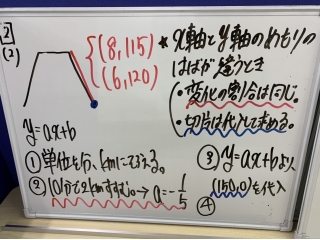 2
(2)
(8,115)
(6,120)
* x軸とy軸のめもりの
はばが違うとき
・変化の割合は同じ。
・切片は代入して求める。
y=ax+b
① 単位を分、kmにそろえる。
② 10分で2kmすすむ。→ a=-1/5
③ y=ax+bより
(150,0)を代入
④